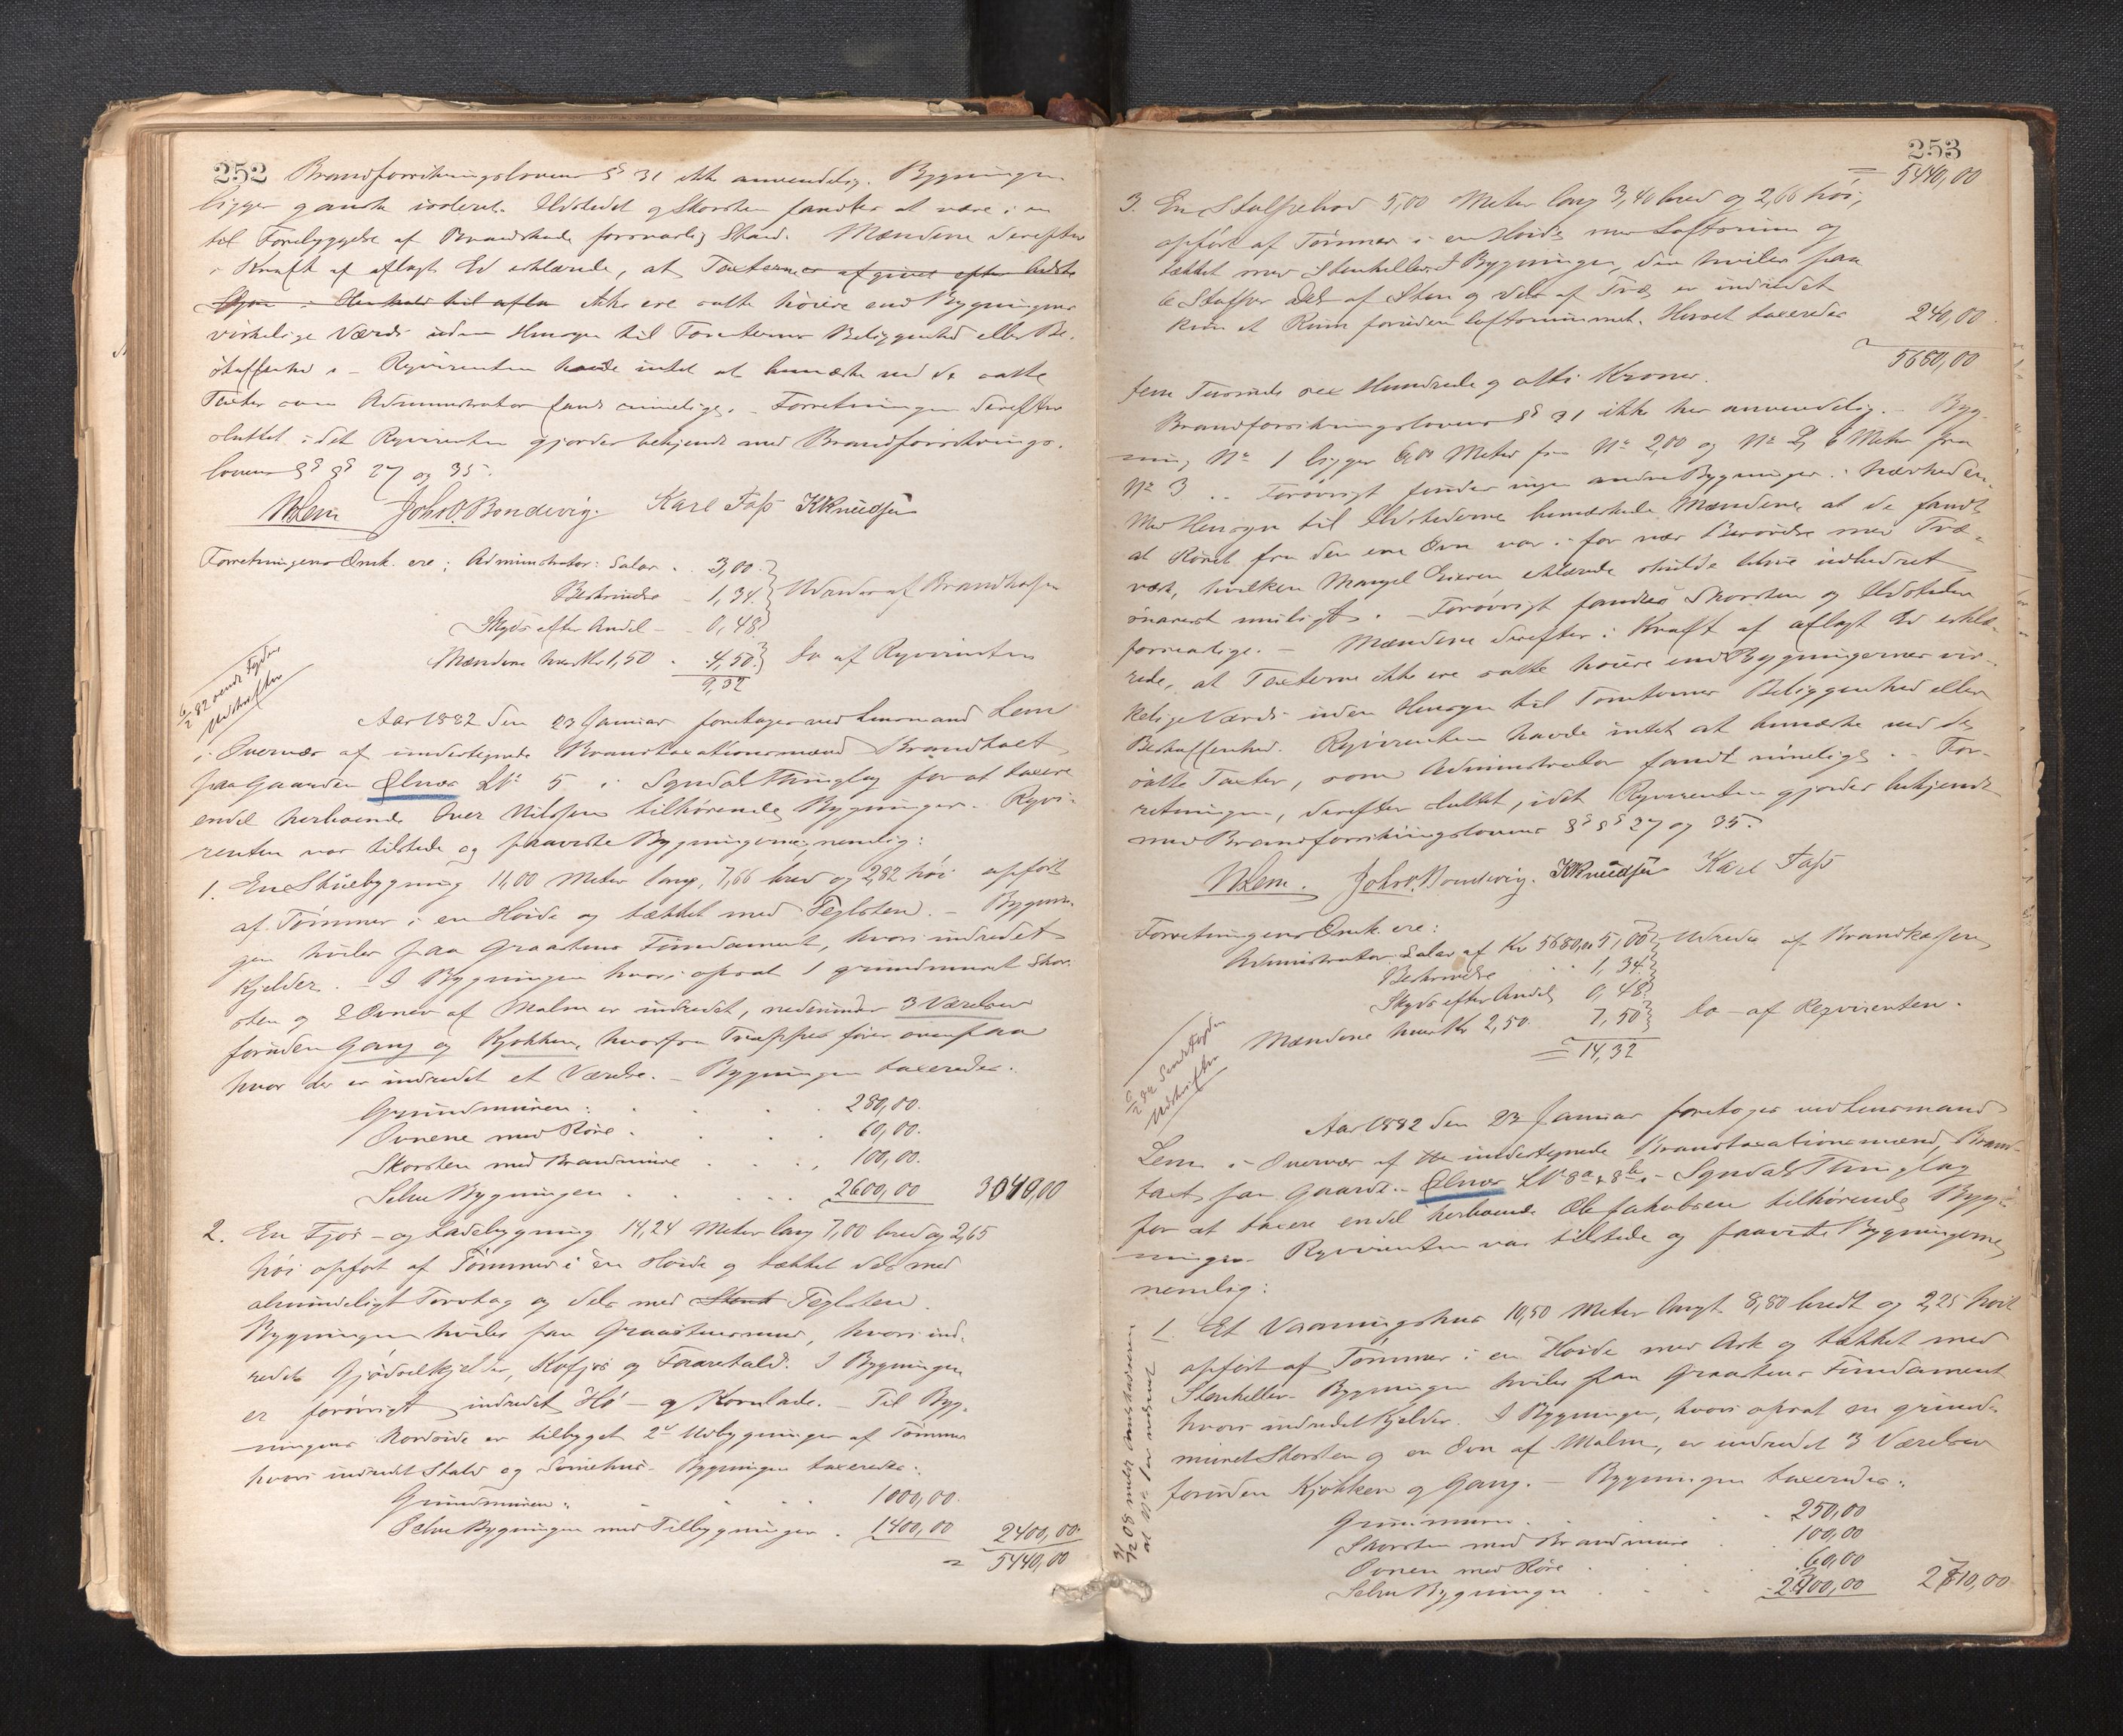 252 Brandforsikringslovens §§ 31 ikke anvendelig. Bygningen
ligger ganske isoleret. Ildstedet og Skorsten fandtes at være i en
til Forebyggelse af Brandskade forsvarlig Stand. Mændene derefter
i Kraft af aflagt Ed erklærede, at Taxterne er afgivet efter bedste
Skjøn i Henhold til afla ikke ere satte høiere end Bygningens
virkelige Værdi uden Hensyn til Tomternes Beliggenhed eller Be-
skaffenhed. - Reqvirenten havde intet at bemærke ved de satte
Taxter som Administrator fandt rimelige. - Forretningen derefter
sluttet idet Reqvirenten gjordes bekjendt med Brandforsikrings-
lovens §§ §§ 27 og 35.
NLem Joh. O. Bondevig. Karl Faß KKnudsen
Forretningens Omk. ere: Administrator: Salar . . 3,00.
Beskrivelse - 1,34. Udredes af Brandkassen
Skyds efter Andel - - 0,48
Mændene hver Kr 1,50 . 4,50. do af Reqvirenten
9,32
6/2 82 sendt Fogden
Udskriften
Aar 1882 den 23 Januar foretages ved Lensmand Lem
i Overvær af undertegnede Brandtaxationsmænd Brandtaxt
paa Gaarden Ølnæs LN° 5 i Sogndals Thinglag for at taxere
endel herboende Iver Nilssen tilhørende Bygninger. Reqvi-
renten var tilstede og paaviste Bygningerne, nemlig:
1. En Stuebygning 11,00 Meter lang, 7,66 bred og 2,82 høi opført
af Tømmer i en Høide og tækket med Teglsten. - Bygnin-
gen hviler paa Graastens Fundament, hvori indredet
Kjelder. - I Bygningen hvori opsat 1 grundmuret Skor-
sten og 2 Ovner af Malm er indredet, nedenunder 3 Værelser
foruden Gang og Kjøkken, hvorfra Trappe fører ovenpaa
hvor der er indredet et Værelse. - Bygningen taxeredes.
Grundmuren: . . . . 280,00.
Ovnene med Røre . . . . 60,00.
Skorsten med Brandmure . . . . 100,00.
Selve Bygningen . . . . 2600,00 3040,00
2. En Fjøs- og Ladebygning 14,24 Meter lang 7,00 bred og 2,65
høi opført af Tømmer i en Høide og tækket dels med
almindeligt Torvtag og dels med Stenh Teglsten.
Bygningen hviler paa Graastensmur, hvori ind-
redet Gjødselkjelder, Kofjøs og Faarestald. I Bygningen
er forøvrigt indredet Hø- og Kornlade. - Til Byg-
ningens Nordside er tilbygget 2de Udbygninger af Tømmer
hvori indredet Stald og Svinehus. Bygningen taxeredes:
Grundmuren: . . . . 1000,00.
Selve Bygningen med Tilbygninger . 1400,00 2400,00.
= 5440,00
253
= 5440,00
3. En Stolpebod 5,00 Meter lang 3,40 bred og 2,66 høi,
opført af Tømmer i en Høide med Loftsrum og
tækket med Stenheller. I Bygningen, der hviler paa
6 Stolper dels af Sten og dels af Træ, er indredet
kun et Rum foruden Loftsrummet. Huset taxeredes 240,00
5680,00
fem Tusinde sex Hundrede og otti Kroner.
Brandforsikringslovens §§ 31 ikke her anvendelig. - Byg-
ning N° 1 ligger 6,00 Meter fra N° 2,00 og N° 2, 6 Meter fra
N° 3 . . Forøvrigt findes ingen andre Bygninger i Nærheden.
Med Hensyn til Ildstederne bemærkede Mændene, at de fandt
at Røret fra den ene Ovn var i for nær Berørelse med Træ-
værk, hvilken Mangel Eieren erklærede skulde blive udbedret
snarest muligt. - Forøvrigt fandtes Skorsten og Ildsteder
forsvarlige. - Mændene derefter i Kraft af aflagt Ed erklæ-
rede, at Taxterne ikke ere satte høiere end Bygningernes vir-
kelige Værdi uden Hensyn til Tomternes Beliggenhed eller
Beskaffenhed. Reqvirenten havde intet at bemærke ved de
satte Taxter, som Administrator fandt rimelige. - For-
retningen, derefter sluttet, idet Reqvirenten gjordes bekjendt
med Brandforsikringslovens §§ §§ 27 og 35.
NLem. Joh. O. Bondevig. KKnudsen Karl Faß
Forretningens Omk. ere:
Administrator: Salar af Kr 5680,00 5,00 Udredes af Brandkassen
Beskrivelse . . 1,34
Skyds efter Andel 0,48
Mændene hver Kr 2,50. 7,50 do - af Reqvirenten.
= 14,32
6/2 82 Sendt Fogden
Udskriften
Aar 1882 den 23 Januar foretages ved Lensmand
Lem i Overvær af undertegnede Brandtaxationsmænd, Brand-
taxt paa Gaarden Ølnæs LN° 8a & 8b i Sogndals Thinglag
for at taxere endel herboende Ole Jakobsen tilhørende Byg-
ninger. Reqvirenten var tilstede og paaviste Bygningerne,
nemlig:
1. Et Vaaningshus 10,50 Meter langt 8,80 bredt og 2,25 høit
opført af Tømmer i en Høide med Ark og tækket med
Stenheller. Bygningen hviler paa Graastens Fundament
hvori indredet Kjelder. I Bygningen, hvori opsat en grund-
muret Skorsten og en Ovn af Malm, er indredet 3 Værelser
foruden Kjøkken og Gang. - Bygningen taxeredes:
Grundmuren . . . . 250,00
Skorsten med Brandmure . . 100,00
Ovnen med Røre . . . 60,00
Selve Bygningen . . . 2400,00 2810,00